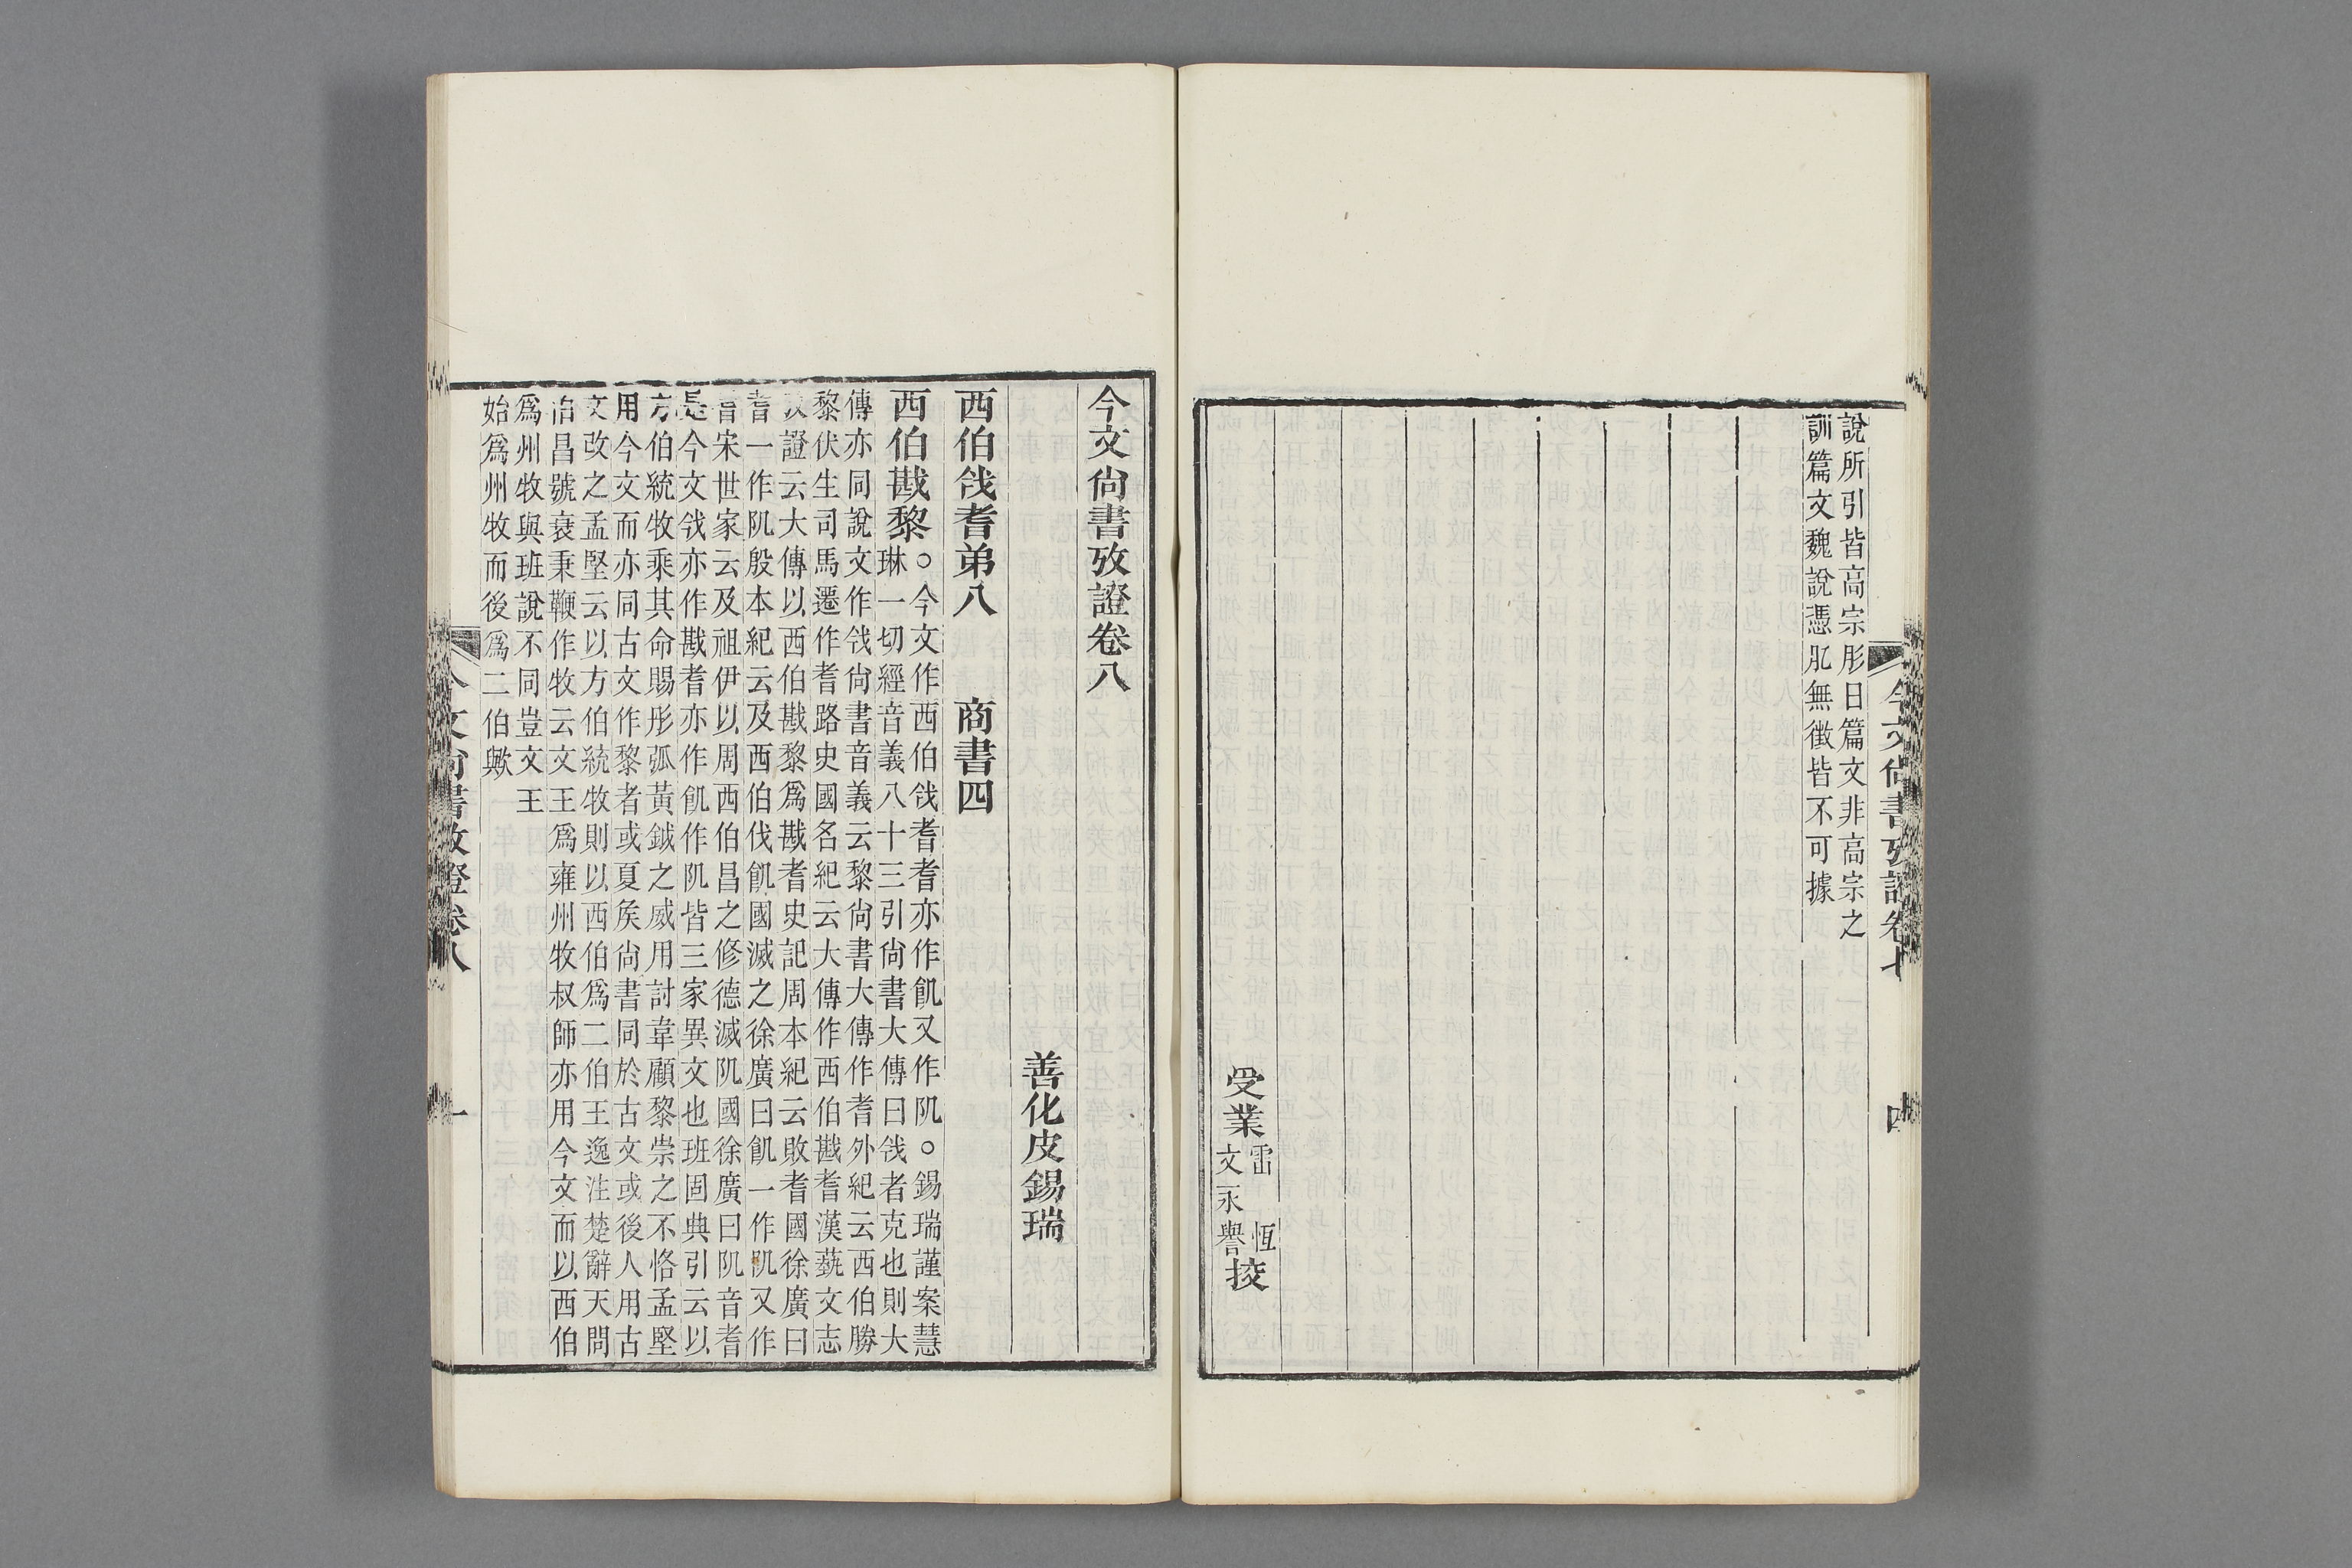 說所引皆高宗肜日篇文非高宗之
訓篇文魏說憑肊無徵皆不可據
受業
雷恆
文永譽
挍
今文尚書攷證卷七
四
今文尚書攷證卷八
善化皮錫瑞
西伯𢦟耆弟八 商書四
西伯戡黎
○今文作西伯𢦟耆耆亦作飢又作阢○錫瑞謹案慧
琳一切經音義八十三引尚書大傳曰𢦟者克也則大
傳亦同說文作𢦟尚書音義云黎尚書大傳作耆外紀云西伯勝
黎伏生司馬遷作耆路史國名紀云大傳作西伯戡耆漢蓺文志
攷證云大傳以西伯戡黎爲戡耆史記周本紀云敗耆國徐廣曰
耆一作阢殷本紀云及西伯伐飢國滅之徐廣曰飢一作䏌又作
耆宋世家云及祖伊以周西伯昌之修德滅阢國徐廣曰阢音耆
是今文𢦟亦作戡耆亦作飢作阢皆三家異文也班固典引云以
方伯統牧乘其命賜彤弧黃鉞之威用討韋顧黎崇之不恪孟堅
用今文而亦同古文作黎者或夏矦尚書同於古文或後人用古
文改之孟堅云以方伯統牧則以西伯爲二伯王逸注楚辭天問
伯昌號衰秉鞭作牧云文王爲雍州牧叔師亦用今文而以西伯
爲州牧與班說不同豈文王
始爲州牧而後爲二伯歟
今文尚書攷證卷八
一